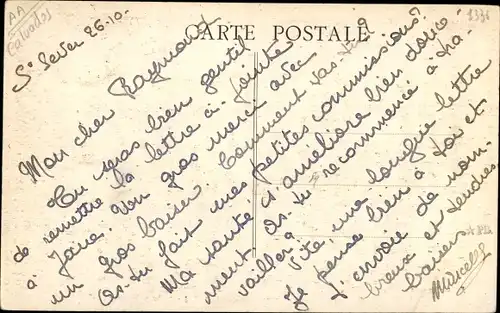 AA
Calvados
1336
CARTE POSTALE
St Sever 26-10-
Mon cher Raymond
Tu seras bien gentil
de remettre la lettre ci-jointe
à Mon gros merci avec
un gros baiser. Comment vas-tu?
As-tu fait mes petites commissions?
Ma santé s'améliore bien douce
ment. As-tu recommencé à tra-
vailler?
Vite, une longue lettre
Je pense bien à toi et
t'envoie de nom-
breux et tendres
baisers
Marcelle